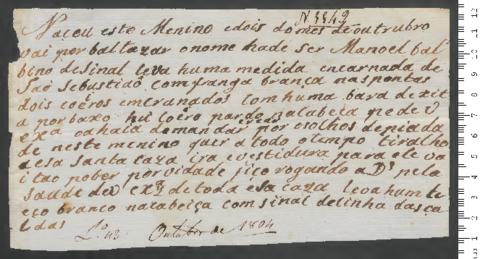 N. 5549
Naceu este Menino e dois do mes de outrubro
vai por baltazar o nome hade ser Manoel bal
bino de sinal leva huma medida encarnada de
São Sebustião com franga branca nas pontas
dois coeros emcranados com huma bara de xit
a por baxo hú coero pardo sa tabeia pede V
ex.ca oahaia de mandar por os olhos de piada
de neste menino quer a todo o tempo tiralho
a esa santa caza ira e vestidura para ele va
i tao pober por vidade fico rogando a D.s pela
saude de V ex.ca de toda esa caza leva hum le
eco branco na cabeica com sinal de linha das ca
ldas
L.o 43 Outubr de 1804
12
11
10
9
8
7
6
5
4
3
2
1